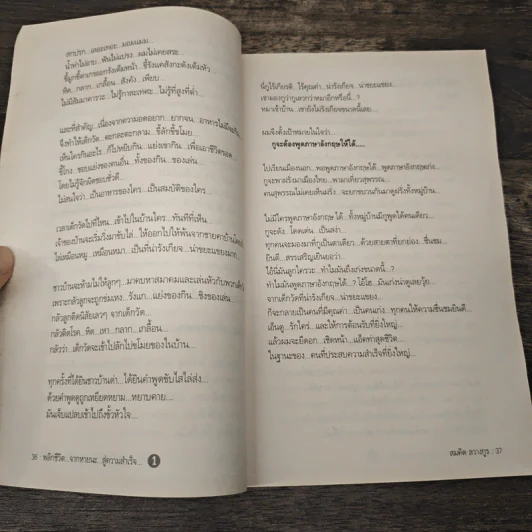 สกปรก...เลอะเทอะ...มอมแมม...
น้ำท่าไม่อาบ...ฟันไม่แปรง...ผมไม่เคยสระ...
ขี้มูกขี้ตาเกรอะกรังเต็มหน้า...ขี้รังแคสังกะตังเต็มหัว...
หิด...กลาก...เกลื้อน...สังคัง...เพียบ...
ไม่มีสัมมาคารวะ...ไม่รู้กาละเทศะ...ไม่รู้ที่สูงที่ต่ำ...
และที่สำคัญ...เนื่องจากความอดอยาก...ยากจน...อาหารไม่มีจะกิน
จึงทำให้เด็กวัด...ตะกละตะกลาม...ขี้ลักขี้ขโมย...
เห็นใครกินอะไร...ก็ไปหยิบกิน...แย่งเขากิน...เพื่อเอาชีวิตรอด
ขี้โกง...ชอบแย่งของคนอื่น...ทั้งของกิน...ของเล่น...
โดยไม่รู้จักผิดชอบชั่วดี...
ไม่สนใจว่า...เป็นอาหารของใคร...เป็นสมบัติของใคร...
เวลาเด็กวัดไปที่ไหน...เข้าไปในบ้านใคร...ทันทีที่เห็น...
เจ้าของบ้านจะเริ่มวิ่งมาขับไล่...ให้ออกไปให้พ้นจากชายคาบ้านโดย
ไล่เหมือนหมู...เหมือนหมา...เป็นที่น่ารังเกียจ...น่าขยะแขยงมาก
ชาวบ้านจะห้ามไม่ให้ลูกๆ...มาคบหาสมาคมและเล่นหัวกับพวกเด็ก
เพราะกลัวลูกจะถูกข่มเหง...รังแก...แย่งของกิน...ชิงของเล่น...
กลัวลูกติดนิสัยเลวๆ จากเด็กวัด...
กลัวติดโรค...หิด...เหา...กลาก...เกลื้อน...
กลัวว่า...เด็กวัดจะเข้าไปลักไปขโมยของในบ้าน...
ทุกครั้งที่ได้ยินชาวบ้านด่า...ได้ยินคำพูดขับไสไล่ส่ง...
ด้วยคำพูดดูถูกเหยียดหยาม...หยาบคาย...
มันเจ็บแปลบเข้าไปถึงขั้วหัวใจ...
36 : พลิกชีวิต...จากหายนะ...สู่ความสำเร็จ... 1
นี่กูไร้เกียรติ...ไร้คุณค่า...น่ารังเกียจ...น่าขยะแขยง...
เขามองกูว่ากูเลวกว่าหมาอีกหรือนี่...?
หมาเข้าบ้าน...เขายังไม่รังเกียจขนาดนี้เลย...
ผมจึงตั้งเป้าหมายในใจว่า...
กูจะต้องพูดภาษาอังกฤษให้ได้.....
ไปเรียนเมืองนอก...พอพูดภาษาอังกฤษได้...พูดภาษาอังกฤษเก่ง...
กูจะพาฝรั่งมาเมืองไทย...พามาเที่ยวสุพรรณ...
คนสุพรรณไม่เคยเห็นฝรั่ง...จะยกขบวนกันมาดูฝรั่งทั้งหมู่บ้าน...
ไม่มีใครพูดภาษาอังกฤษได้...ทั้งหมู่บ้านมีกูพูดได้คนเดียว...
กูจะดัง...โดดเด่น...เป็นสง่า...
ทุกคนจะมองมาที่กูเป็นตาเดียว...ด้วยสายตาที่ยกย่อง...ชื่นชม...
ยินดี...สรรเสริญเยินยอว่า...
ไอ้นี่มันลูกใครวะ...ทำไมมันถึงเก่งขนาดนี้...?
ทำไมมันพูดภาษาอังกฤษได้...? โอ้โฮ...มันเก่งน่าดูเลยวุ้ย...
จากเด็กวัดที่น่ารังเกียจ...น่าขยะแขยง...
ก็จะกลายเป็นคนที่มีคุณค่า...เป็นคนเก่ง...ทุกคนให้ความชื่นชมยินดี...
เอ็นดู...รักใคร่...และให้การต้อนรับที่ยิ่งใหญ่...
แล้วผมจะยืดอก...เชิดหน้า...แอ็คท่าสุดชีวิต...
ในฐานะของ...คนที่ประสบความสำเร็จที่ยิ่งใหญ่...
สมคิด ลวางกูร : 37